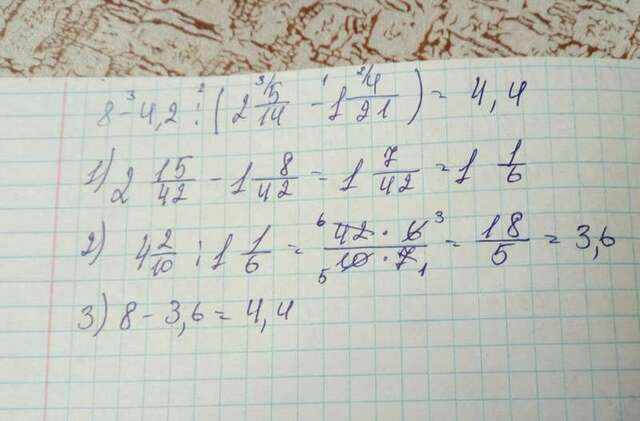 8 -³ 4,2 :² (2 ³⁄5/14 -¹ 1 ²⁄4/21) = 4,4
1) 2 15/42 - 1 8/42 = 1 7/42 = 1 1/6
2) 4 2/10 : 1 1/6 = ⁶42 · 6³/₅10 · 7₁ = 18/5 = 3,6
3) 8 - 3,6 = 4,4